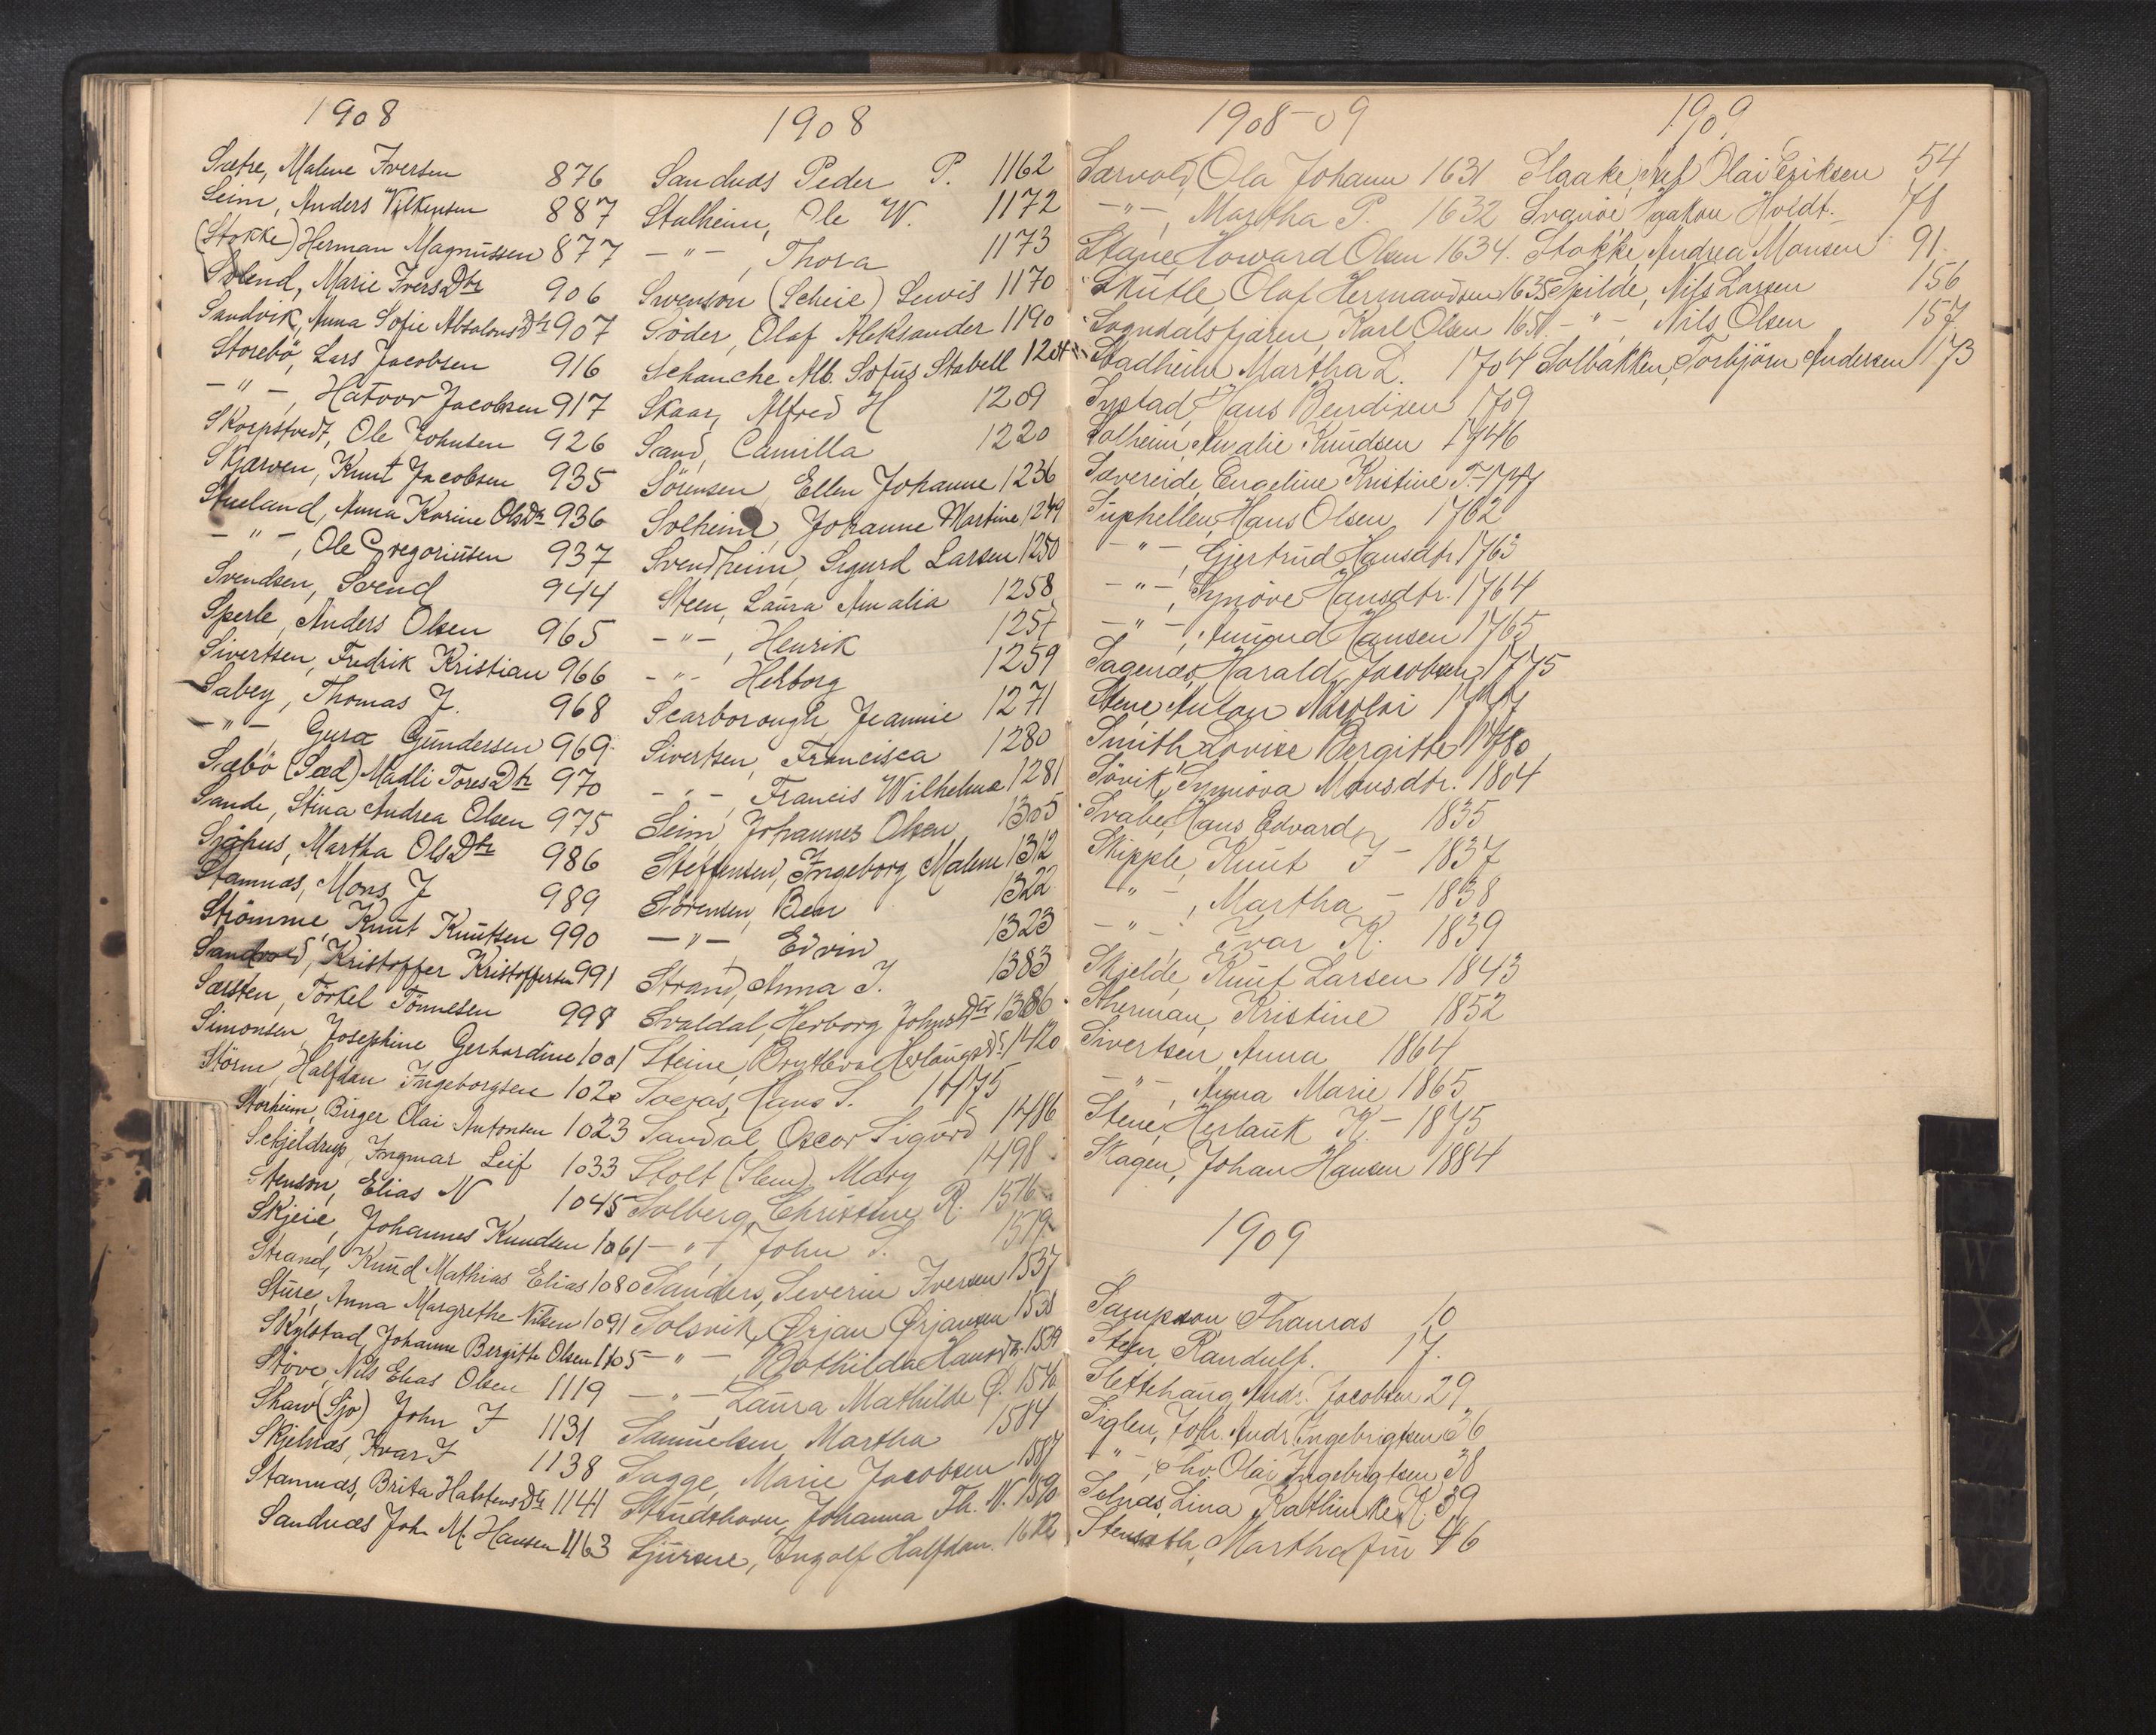 1908
Sætre, Malene Iversen 876
Seim, Anders Vilkensen 887
(Stokke) Herman Magnussen 877
Solend, Marie IversDtr 906
Sandvik, Anna Sofie AbsalonsDtr 907
Storebö, Lars Jacobsen 916
-"-, Hatvor Jacobsen 917
Skorpstvedt, Ole Johnsen 926
Skjærven, Knut Jacobsen 935
Stueland, Anna Karine OlsDtr 936
-"-, Ole Gregoriusen 937
Svendsen, Svend 944
Sperle, Anders Olsen 965
Sivertsen, Fredrik Kristian 966
Sabey, Thomas J. 968
-"-, Guro Gundersen 969
Sæbö (Sæd) Madli ToresDtr 970
Sande, Stina Andrea Olsen 975
Sjöhus, Martha OlsDtr 986
Stamnæs, Mons J 989
Strömme, Knut Knutsen 990
Sandvold, Kristoffer Kristoffersen 991
Sæsten, Törkel Tönnesen 998
Simonsen, Josephine Gerhardine 1001
Störm, Halfdan Ingeborgsen 1020
Storheim, Birger Olai Antonsen 1023
Schjeldrup, Ingmar Leif 1033
Stenson, Elias N 1045
Skjeie, Johannes Knudsen 1061
Strand, Knud Mathias Elias 1080
Sture, Anna Margrethe Nilsen 1091
Skylstad, Johanne Bergitte Olsen 1105
Stöve, Nils Elias Olsen 1119
Shaw (Sjo) John J 1131
Skjelnæs, Ivar J 1138
Stamnæs, Brita HalstensDtr 1141
Sandnæs Joh. M. Hansen 1163
1908
Sandnæs Peder P. 1162
Stalheim, Ole W. 1172
-"-, Thora 1173
Swenson (Scheie) Lewis 1170
Söder, Olaf Aleksander 1190
Schanche, Alb. Sofus Stabell 1204
Skaar, Alfred H 1209
Sand, Camilla 1220
Sörensen, Ellen Johanne 1236
Solheim, Johanne Martine 1249
Svendheim, Sigurd Larsen 1250
Steen, Laura Amalia 1258
-"-, Henrik 1257
-"- Herborg 1259
Scarborough, Jeannie 1271
Sivertsen, Francisca 1280
-"-, Francis Wilhelma 1281
Seim, Johannes Olsen 1305
Steffensen, Ingeborg Malene 1312
Sörensen, Ben 1322
-"-, Edvin 1323
Strand, Anna I. 1383
Svaldal, Herborg JohnsDtr 1386
Steine, 1420
Hans S. 1475
Sandal, Oscar Sigurd 1486
Stolt (Slem) Mary 1498
Solberg, Christine R. 1516
-"-, John S. 1519
Sanders, Severin Iversen 1537
Solsvik, Ørjan Ørjansen 1538
-"-, Bothilda Hansdtr. 1539
-"- Laura Mathilde Ø. 1540
Samuelsen, Martha 1584
Sagge, Marie Jacobsen 1587
Johanna Th. N. 1590
Sjursne, Ingolf Halfdan. 1612
1908-09
Særvold, Ola Johann 1631
-"-, Martha P. 1632
Howard Olsen 1634.
Skutle, Olaf Hermandsen 1635
Sogndalsfjæren, Karl Olsen 1651
Stadheim, Martha L. 1704
Systad, Hans Bendixen 1709
Solheim, Amalie Knudsen 1746
Sævereide, Engeline Kristine T.
Suphellen, Hans Olsen 1762
-"-, Gjertrud Hansdtr. 1763
-"-, Synöve Hansdtr. 1764
-"-, Amund Hansen 1765
Sagenæs, Harald Jacobsen 1775
Stene, Anton Nikolai 1777
Smith, Lovise Bergitte 1780
Sövik, Synnöva Monsdtr. 1804
Svabe, Hans Edvard 1835
Skipple, Knut I - 1837
-"-, Martha - 1838
-"-, Ivar K. 1839
Skjelde, Knut Larsen 1843
Sherman, Kristine 1852
Sivertsen, Anna 1864
-"-, Anna Marie 1865
Stene, Herlauk K. - 1875
Skagen, Johan Hansen 1884
1909
Sampson Thomas 10
Steen, Randulf. 17.
Slettehaug, Andr. Jacobsen 29
Siglen, Joh. Andr. Ingebrigtsen 36
-"-, Olai Ingebrigtsen 38
Solnæs, Lina Kathinke K. 39
Stensæth, Martha 46
1909
Slaake, Olai Eriksen 54
Haakon Holdt. 78
Stokke, Andrea Monsen 91
Spilde, Nils Larsen 156
-"-, Nils Olsen 157
Solbakken, Torbjörn Andersen 173